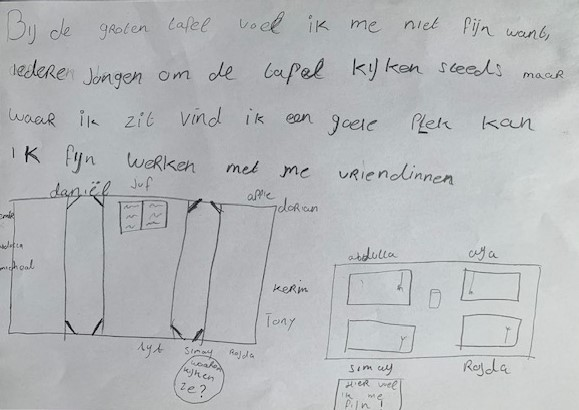 Bij de groten tafel voel ik me niet fijn want,
iederen Jongen om de tafel kijken steeds maar
waar ik zit vind ik een goeie plek kan
ik fijn werken met me vriendinnen
daniël juf appie
dorian
michaal
Kerim
Tony
lyt Simay Rojda
waarom kijken ze?
abdulla aya
Simay Rojda
HIER voel
ik me
fijn!